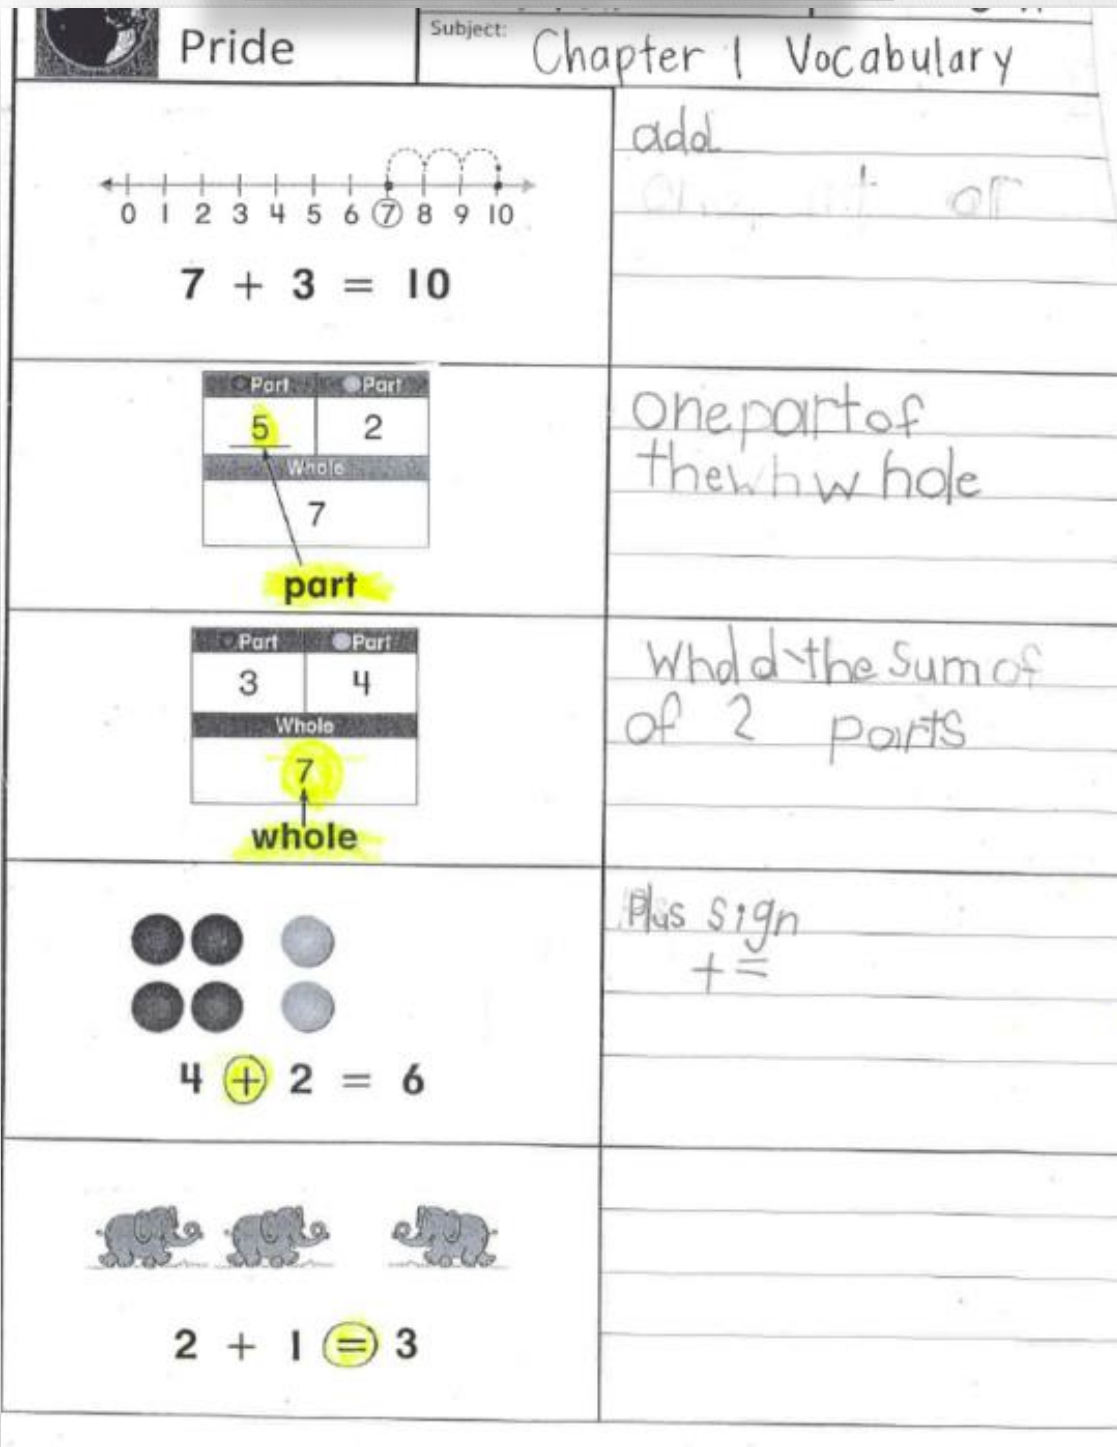 Pride
Subject: Chapter 1 Vocabulary
0 1 2 3 4 5 6 7 8 9 10
7 + 3 = 10
add
or
Part Part
5 2
Whole
7
part
one part of
thewhw hole
Part Part
3 4
Whole
7
whole
Whold the Sum of
of 2 parts
4 + 2 = 6
Plus sign
+ =
2 + 1 = 3